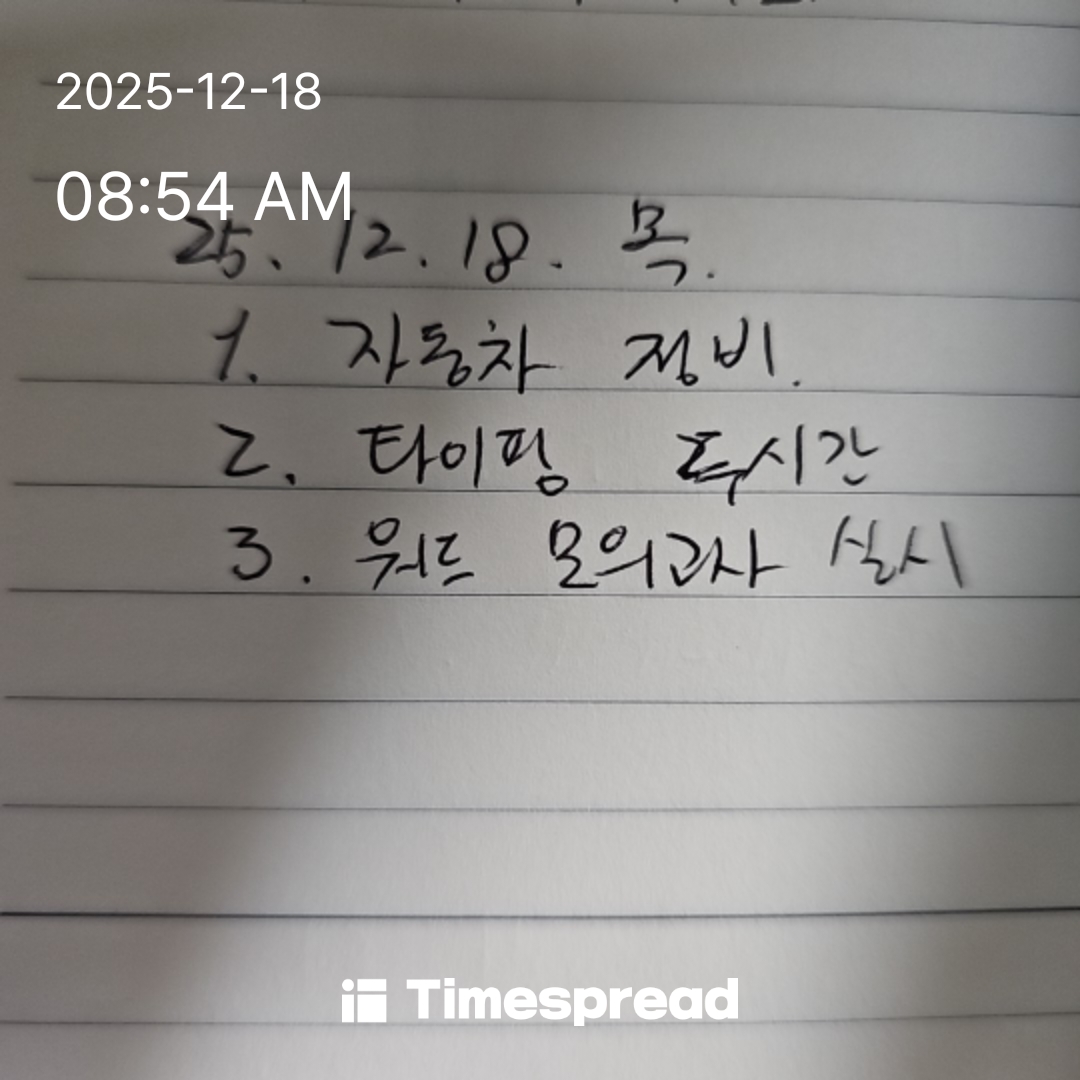 2025-12-18
08:54 AM
25. 12. 18. 목.
1. 자동차 정비.
2. 타이핑 두시간
3. 워드 모의고사 실시
Timespread